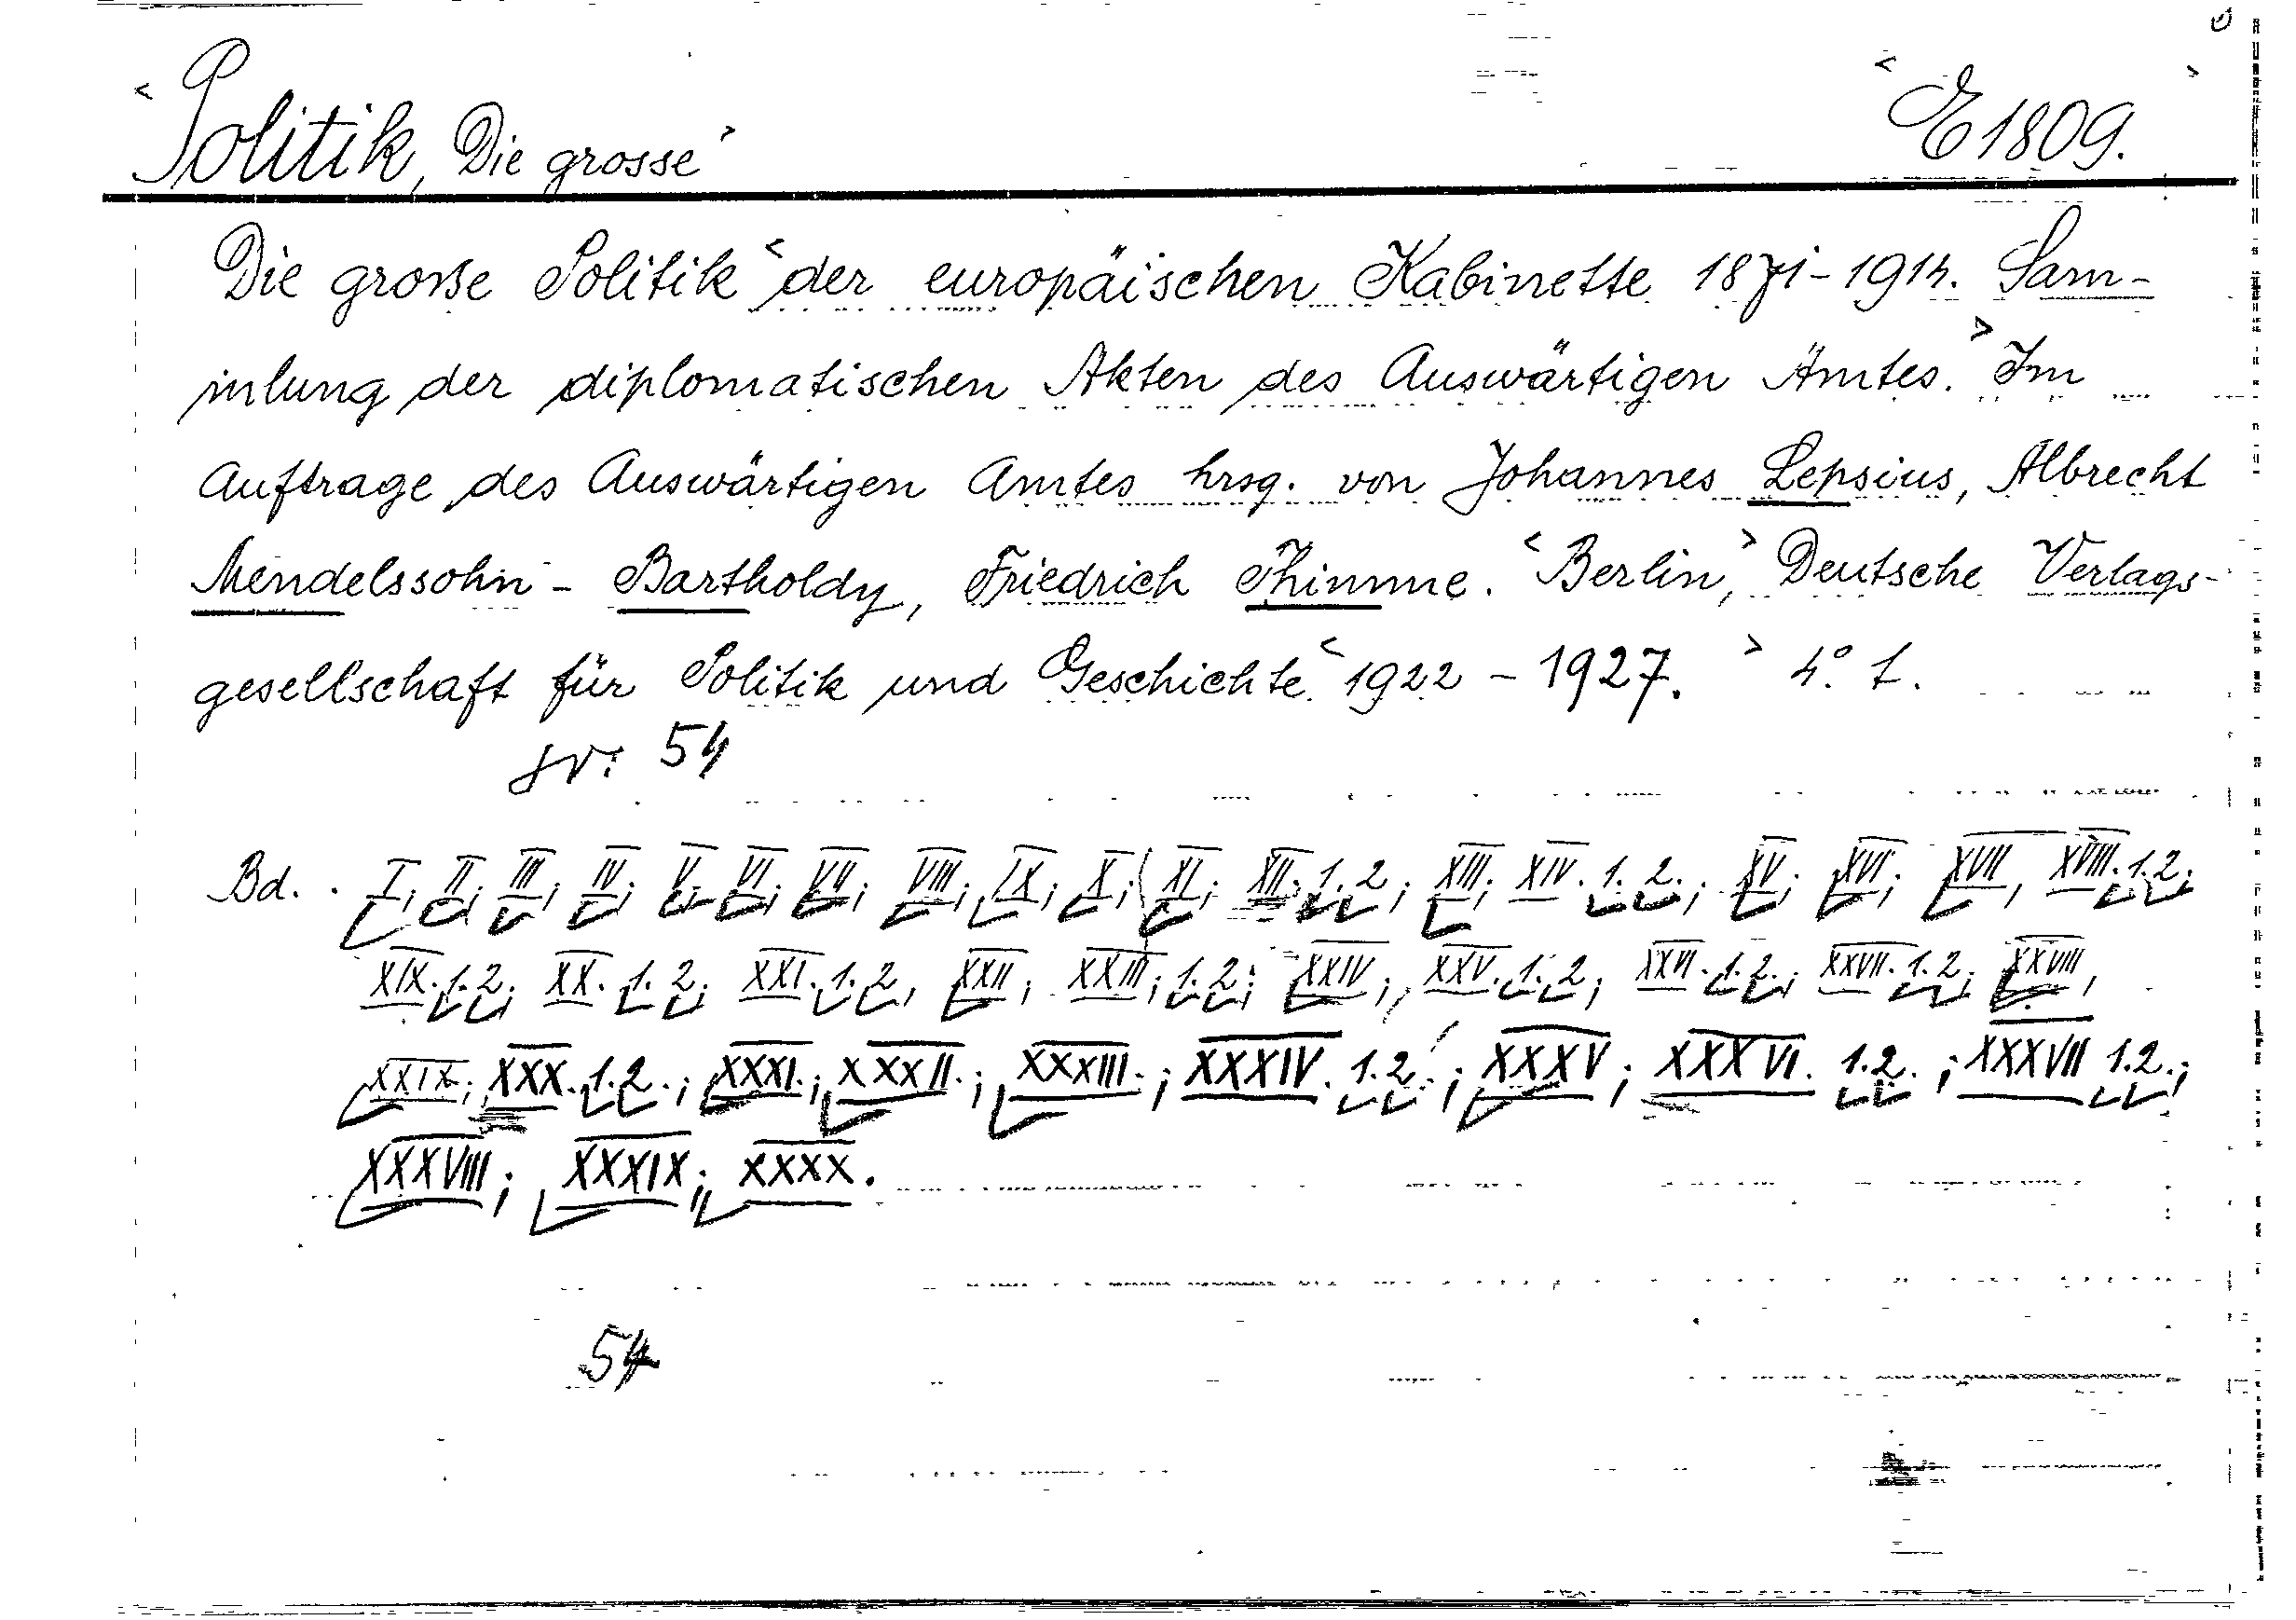 <Politik, Die grosse> <E 1809.>
Die grosse Politik <der europäischen Kabinette 1871-1914. Sam-
mlung der diplomatischen Akten des Auswärtigen Amtes.> Im
Auftrage des Auswärtigen Amtes hrsg. von Johannes Lepsius, Albrecht
Mendelssohn - Bartholdy, Friedrich Thimme. <Berlin,> Deutsche Verlags-
gesellschaft für Politik und Geschichte <1922 - 1927. > 4°.
54
Bd. I; II; III; IV; V; VI; VII; VIII; IX; X; XI; XII. 1. 2; XIII; XIV. 1. 2.; XV; XVI; XVII, XVIII. 1. 2;
XIX. 1. 2; XX. 1. 2; XXI. 1. 2, XXII; XXIII; 1. 2; XXIV; XXV. 1. 2; XXVI. 1. 2.; XXVII. 1. 2; XXVIII,
XXIX; XXX. 1. 2.; XXXI.; XXXII.; XXXIII.; XXXIV. 1. 2.; XXXV; XXXVI. 1. 2.; XXXVII 1. 2.;
XXXVIII; XXXIX; XXXX.
54